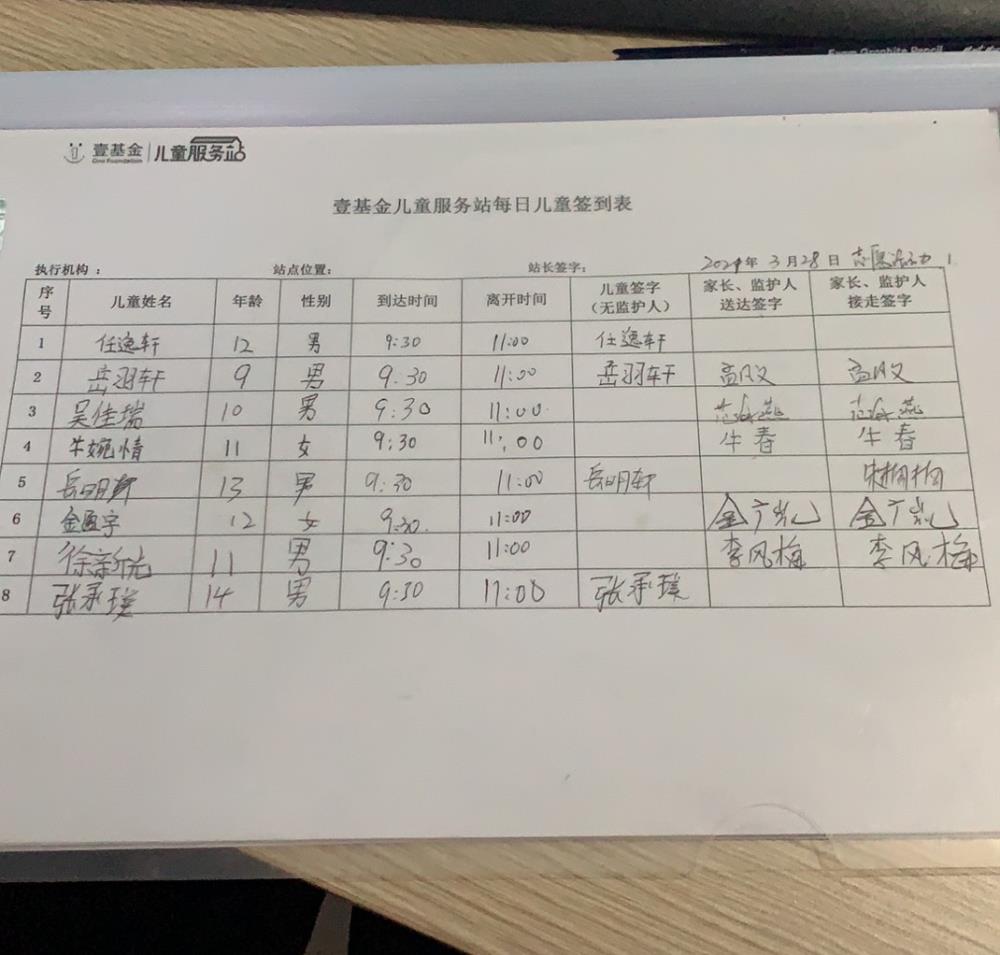 Faber Graphite Pencil
壹基金 儿童服务站
One Foundation
壹基金儿童服务站每日儿童签到表
执行机构： 站点位置： 站长签字： 2024年 3月28日
序号 儿童姓名 年龄 性别 到达时间 离开时间 儿童签字（无监护人） 家长、监护人送达签字 家长、监护人接走签字
1 任逸轩 12 男 9:30 11:00 任逸轩
2 岳羽轩 9 男 9:30 11:00 岳羽轩
3 吴佳瑞 10 男 9:30 11:00
4 牛婉情 11 女 9:30 11:00 牛春 牛春
5 岳明轩 13 男 9:30 11:00 岳明轩 宋桐桐
6 12 女 9:30 11:00
7 11 男 9:30 11:00 李风梅 李风梅
8 张承璞 14 男 9:30 11:00 张承璞